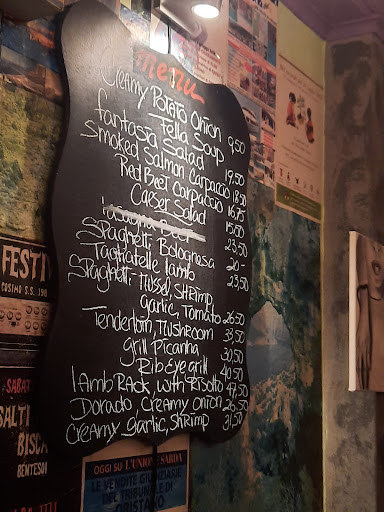 menu
Creamy Potato Onion
Fella Soup 9,50
fantasia Salad 19,50
Smoked Salmon Carpaccio 18,50
Red Beet Carpaccio 16,75
Caeser Salad 15,00
lasagna Beef 23,50
Spaghetti Bolognasa 20-
Tagliatelle lamb 23,50
Spaghetti Mussel, Shrimp
Garlic, Tomato 26,50
Tenderloin, Mushroom 33,50
grill Picanha 30,50
Rib Eye grill 40,50
lamb Rack, with Risotto 47,50
Dorado, Creamy Onion 26,50
Creamy Garlic, Shrimp 31,50
FESTI
COSIMO S.S. 190
SABAT
SALTI
BISCA
BENTESOI
OGGI SU L'UNIONE SARDA
LE VENDITE GIUDIZIARIE
DEL TRIBUNALE DI
ORISTANO